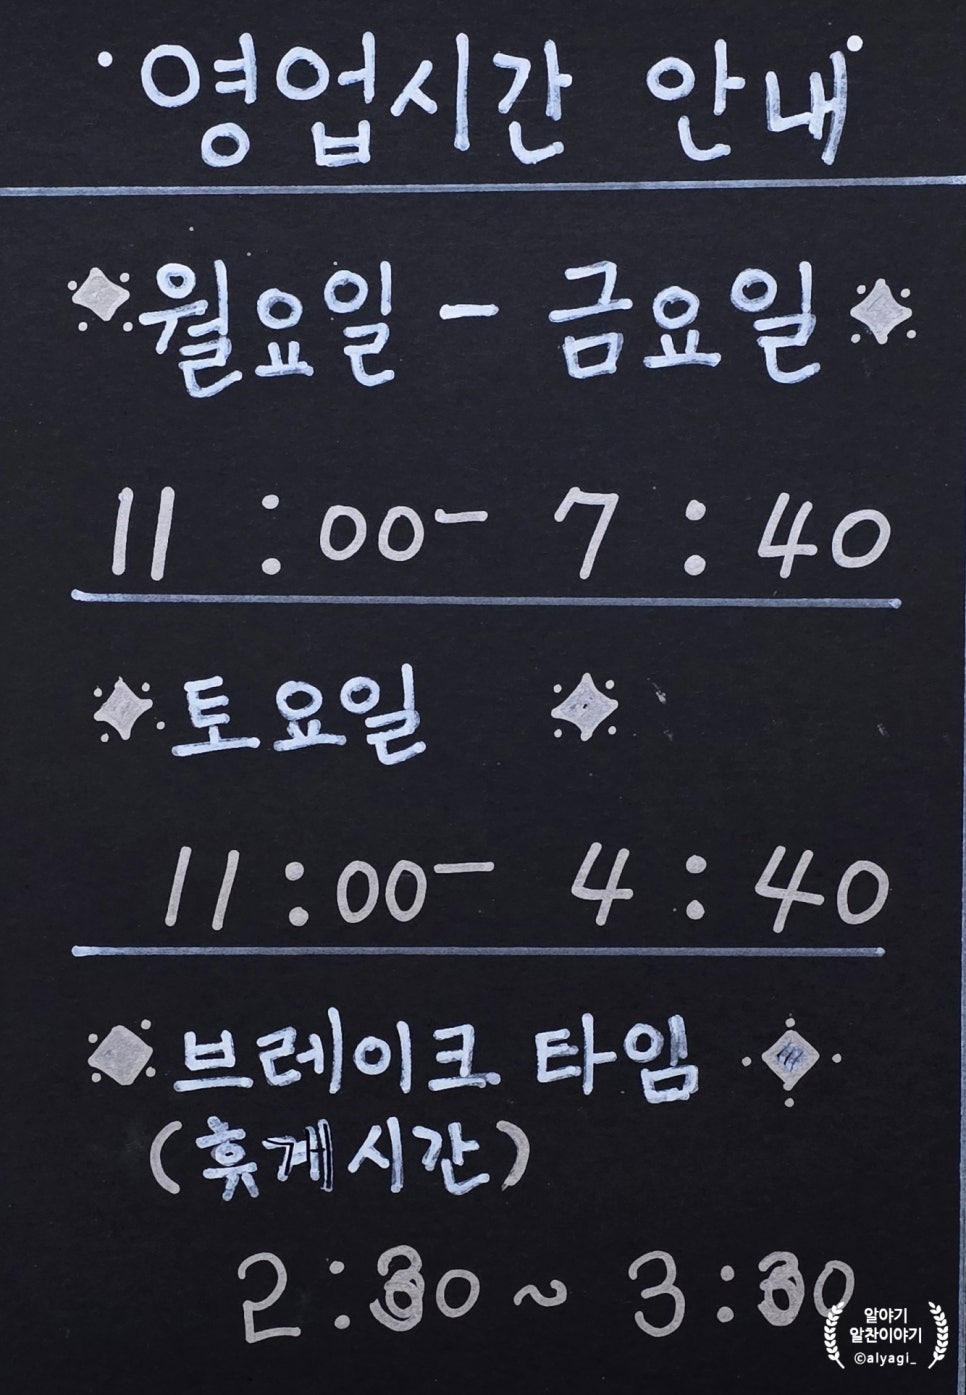 영업시간 안내
월요일 - 금요일
11 : 00 - 7 : 40
토요일
11 : 00 - 4 : 40
브레이크 타임
(휴게시간)
2 : 30 ~ 3 : 30
알야기
알찬이야기
©alyagi_